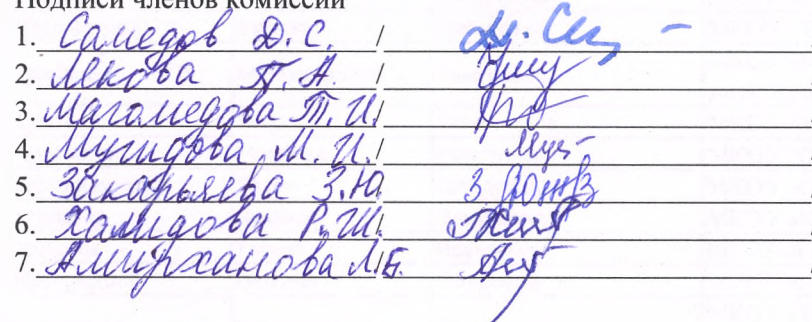 Подписи членов комиссии
1. Самедов Д. С. /
2. Лекова П. А. /
3. Магомедова Т. И. /
4. Мугидова М. И. /
5. Закарьяева З. Ю.
6. Халидова Р. Ш.
7. Амирханова М. Б.